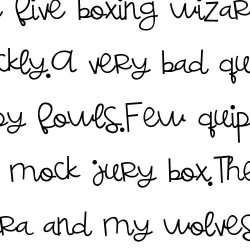 five boxing wizar
ckly.A very bad qu
py fowls.Few quip
mock jury box.The
ra and my wolves